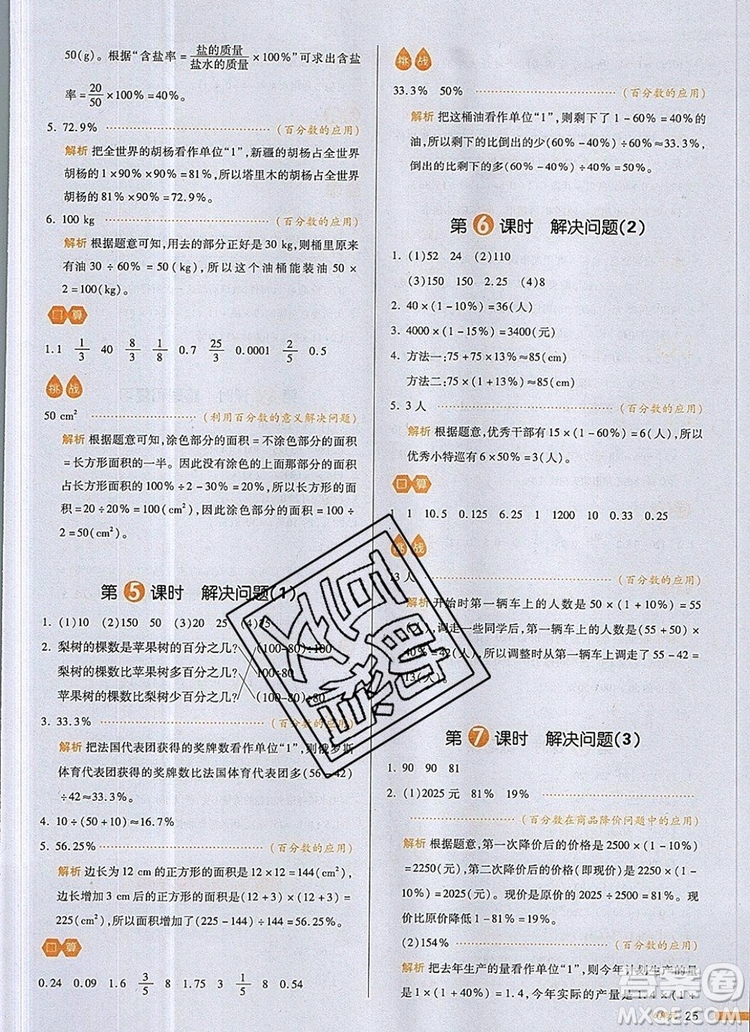 50(g)。根据“含盐率=盐的质量/盐水的质量×100%”可求出含盐
率=20/50×100%=40%。
5. 72.9% (百分数的应用)
解析 把全世界的胡杨看作单位“1”,新疆的胡杨占全世界
胡杨的1×90%×90%=81%,所以塔里木的胡杨占全世界
胡杨的81%×90%=72.9%。
6. 100 kg (百分数的应用)
解析 根据题意可知,用去的部分正好是30 kg,则桶里原来
有油30÷(1-40%)=50(kg),所以这个油桶能装油50×
2=100(kg)。
口算
1.1 1/3 40 8/3 1/8 0.7 25/3 0.0001 1/2 0.5
挑战
50 cm² (利用百分数的意义解决问题)
解析 根据题意可知,涂色部分的面积=空白部分的面积
=长方形面积的一半。因此没有涂色的上面那部分的面积
占长方形面积的100%÷2-30%=20%,所以长方形的面
积=20÷20%=100(cm²),因此涂色部分的面积=100÷
2=50(cm²)。
第5课时 解决问题(1)
1. (1)20 (2)150 50 (3)20 25 (4)25
2. 梨树的棵数是苹果树的百分之几? (100-80)÷100
梨树的棵数比苹果树少百分之几? 80÷100
苹果树的棵数比梨树多百分之几? (100-80)÷80
3. 33.3% (百分数的应用)
解析 把法国代表团获得的奖牌数看作单位“1”,则俄罗斯
体育代表团的奖牌数比法国体育代表团多(56-42)
÷42≈33.3%。
4. 10÷(50+10)≈16.7%
5. 56.25% (百分数的应用)
解析 边长为12 cm的正方形的面积是12×12=144(cm²),
边长增加3 cm后的面积为(12+3)×(12+3)=
225(cm²),所以面积增加了(225-144)÷144=56.25%。
口算
0.24 0.09 1.6 3/5 8 7.5 3/5 1 8 0.54
挑战
33.3% 50% (百分数的应用)
解析 把这桶油看作单位“1”,则剩下1-60%=40%的
油,所以剩下的比倒出的少(60%-40%)÷60%≈33.3%,
倒出的比剩下的多(60%-40%)÷40%=50%。
第6课时 解决问题(2)
1. (1)52 24 (2)110
(3)150 150 2.25 (4)8
2. 40×(1-10%)=36(人)
3. 4000×(1-15%)=3400(元)
4. 方法一:75+75×13%≈85(cm)
方法二:75×(1+13%)≈85(cm)
5. 3人 (百分数的应用)
解析 根据题意,优秀干部有15×(1-60%)=6(人),所以
优秀小特巡有6×50%=3(人)。
口算
1 1 10.5 0.125 6.25 1 1000 10 0.33 0.25
挑战
13人 (百分数的应用)
解析 开始时第一辆车上的人数是50×(1+10%)=
(人),调走一些同学后,第一辆车上的人数是(55+50)×
40%=42(人),所以调整时从第一辆车上调走了55-42=
13(人)。
第7课时 解决问题(3)
1. 90 90 81
2. (1)2025元 81% 19%
(百分数在商品降价问题中的应用)
解析 根据题意,第一次降价后的价格是2500×(1-10%)
=2250(元),第二次降价后的价格(即现价)是2250×(1-
10%)=2025(元)。现价是原价的2025÷2500=81%。现
价比原价降低了1-81%=19%。
(2)154% (百分数的应用)
解析 把去年生产的量看作单位“1”,则今年计划生产的量
是1×(1+40%)=1.4,今年实际的产量是1.4×(1+
25